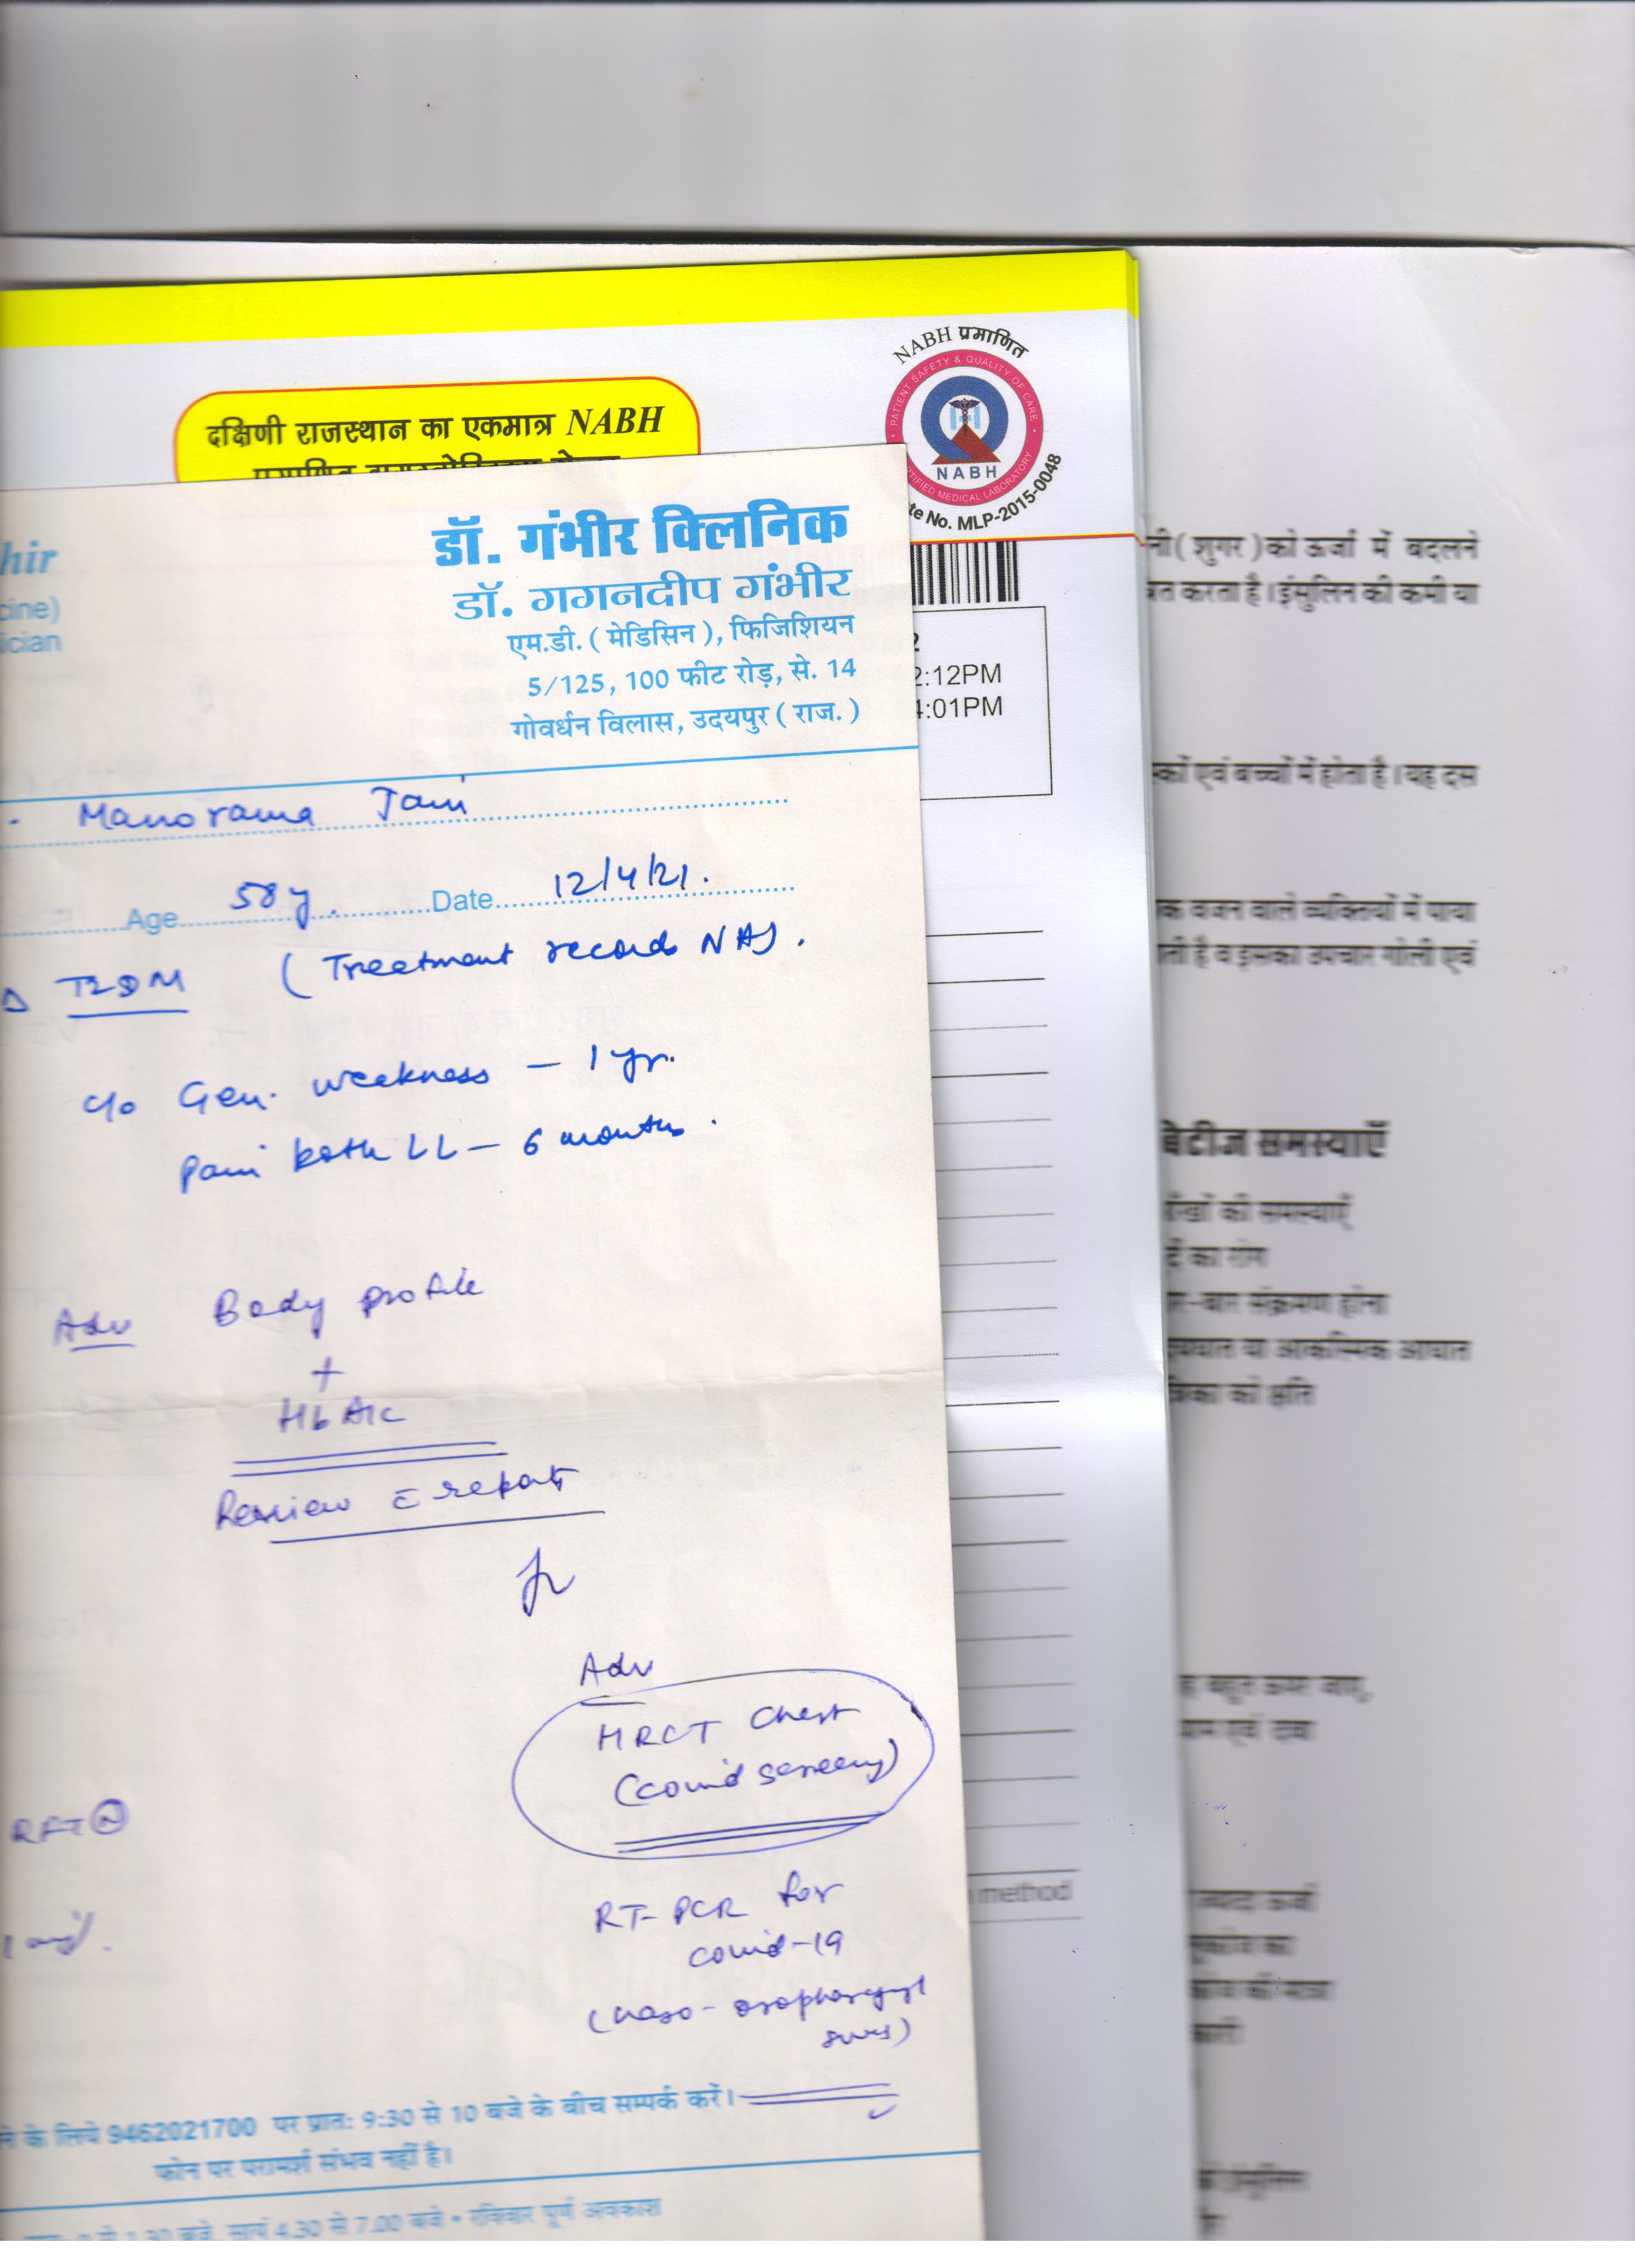 NABH प्रमाणित
PATIENT SAFETY & QUALITY OF CARE
NABH
CERTIFIED MEDICAL LABORATORY
te No. MLP-2015-0048
दक्षिणी राजस्थान का एकमात्र NABH
hir
cine)
ician
डॉ. गंभीर क्लिनिक
डॉ. गगनदीप गंभीर
एम.डी. ( मेडिसिन ), फिजिशियन
5/125, 100 फीट रोड़, से. 14
गोवर्धन विलास, उदयपुर ( राज. )
2:12PM
4:01PM
Manorama Jain
Age 58y. Date 12/4/21.
Δ T2DM (Treatment record NA).
c/o Gen. weakness – 1 yr.
Pain both LL – 6 months.
Adv Body profile
+
HbA1c
Review c̄ reports
Adv
HRCT Chest
(covid screening)
RFT Ⓝ
RT-PCR for
covid-19
(naso-oropharyngeal
swab)
ने के लिये 9462021700 पर प्रात: 9:30 से 10 बजे के बीच सम्पर्क करें।
फोन पर परामर्श संभव नहीं है।
1.30 बजे, सायं 4.30 से 7.00 बजे • रविवार पूर्ण अवकाश
method
नी ( शुगर ) को ऊर्जा में बदलने
त करता है। इंसुलिन की कमी या
कों एवं बच्चों में होता है। यह दस
क वजन वाले व्यक्तियों में पाया
ती है व इसका उपचार गोली एवं
बेटीज समस्याएँ
ँखों की समस्याएँ
का रोग
र-बार संक्रमण होना
या आकस्मिक आघात
का को क्षति